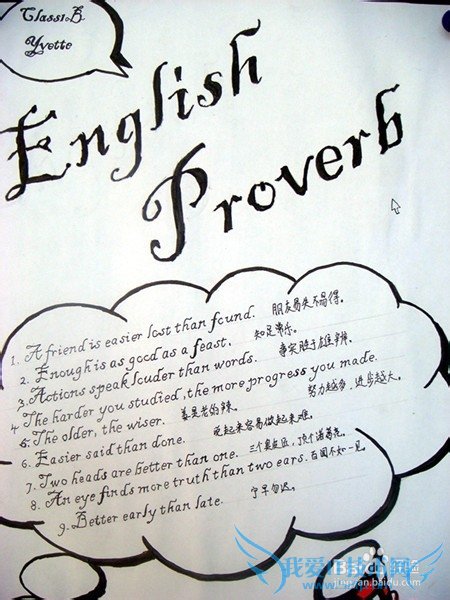 Class1.B
Yvette
English
Proverb
1. A friend is easier lost than found. 朋友易失不易得。
2. Enough is as good as a feast. 知足常乐。
3. Actions speak louder than words. 事实胜于雄辩。
4 The harder you studied, the more progress you made. 努力越多，进步越大。
5. The older, the wiser. 姜是老的辣。
6. Easier said than done. 说起来容易做起来难。
7. Two heads are better than one. 三个臭皮匠，顶个诸葛亮。
8. An eye finds more truth than two ears. 百闻不如一见。
9. Better early than late. 宁早勿迟。
jingyan.baidu.com